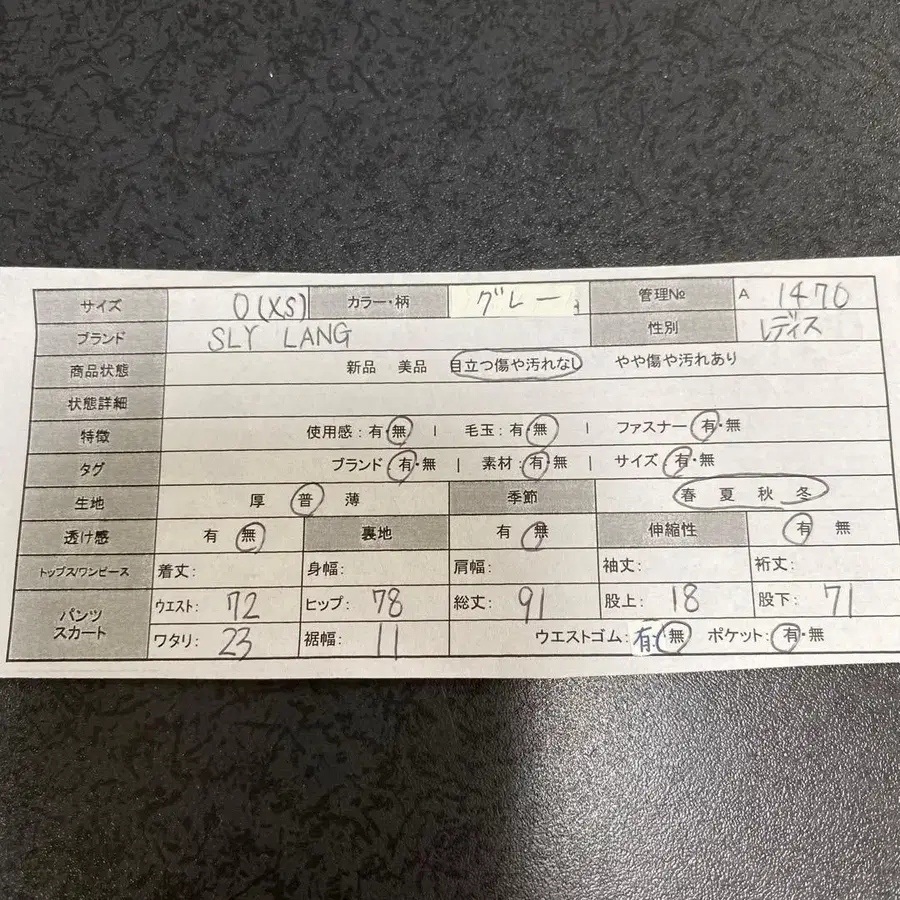 サイズ 0(XS) カラー・柄 グレー 管理№ A 1470
ブランド SLY LANG 性別 レディス
商品状態 新品 美品 目立つ傷や汚れなし やや傷や汚れあり
状態詳細
特徴 使用感:有・無 | 毛玉:有・無 | ファスナー有・無
タグ ブランド有・無 | 素材:有・無 | サイズ有・無
生地 厚 普 薄 季節 春 夏 秋 冬
透け感 有 無 裏地 有 無 伸縮性 有 無
トップス/ワンピース 着丈: 身幅: 肩幅: 袖丈: 裄丈:
パンツ スカート ウエスト: 72 ヒップ: 78 総丈: 91 股上: 18 股下: 71
ワタリ: 23 裾幅: 11 ウエストゴム:有・無 ポケット:有・無